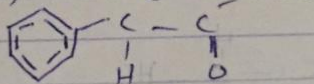 C - C
H O